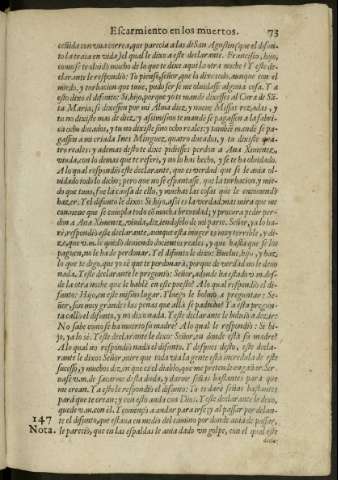 Escarmiento en los muertos. 73
ceñida con vna correa, que parecia a las de San Agustin (que el difun-
to la traia en vida) el qual le dixo a este declarante. Francisco, hijo,
como se te olvidò mucho de lo que te dixe aqui la otra noche? Y este de-
clarante le respondiò: Tu pienso, señor, que lo dixe todo, aunque con el
miedo, y turbacion que tuue, pudo ser se me olvidasse alguna cosa. Y a
esto dixo el difunto: Si, hijo, porque yo te mandè dixesses al Cura de Sã-
ta Maria, se dixessen por mi Alma diez y nueue Missas rezadas, y
tu no dixiste mas de diez; y assimismo te mandè se pagassen a la fabri-
ca ocho ducados, y tu no dixiste sino ocho reales; y tambiẽ mandè se pa-
gassen a mi criada Ines Minguez, quatro ducados, y tu dixiste qua-
tro reales; y ademas desto te dixe pidiesses perdon a Ana Ximenez,
viuda, con lo demas que te referì, y no lo has hecho, y se te ha olvidado.
A lo qual respondiò este declarante, que es verdad que se le auia ol-
vidado todo lo dicho; pero que no se espantasse, que la turbacion, y mie-
do que tuuo, fue la causa de ello, y muchas las cosas que le encomendò
hazer. Y el difunto le dixo: Si hijo, assi es la verdad; mas mira que me
conuiene que se cumpla todo cõ mucha breuedad; y procura pedir per-
don a Ana Ximenez, viuda, diziendoselo de mi parte. Señor, yo lo ha-
rè, respondiò este declarante, aunque esta muger es muy terrible, y di-
ze, que v.m. le quedò deuiendo docientos reales, y que hasta que se los
paguen, no le ha de perdonar. Y el difunto le dixo: Buelue, hijo, y haz
lo que te digo, que yo sè que te perdonarà; porque de verdad no le deuo
nada. Y este declarante le preguntò: Señor, adonde ha estado v.m. des-
de la otra noche que le hablè en este puesto? A lo qual respondiò el di-
funto: Hijo, en este mismo lugar. Y luego le boluiò a preguntar: Se-
ñor, son muy grandes las penas que allà se padecen? Y a esta pregun-
ta callò el difunto, y no dixo nada. Y este declarante le boluiò a dezir:
No sabe como se ha muerto su madre? A lo qual le respondiò: Si hi-
jo, ya lo sè. Y este declarante le dixo: Señor, en donde està su madre?
A lo qual no respondiò nada el difunto. Y despues desto, este decla-
rante le dixo: Señor, mire que toda la gente està incredula de este
sucesso, y muchos dizen que es el diablo, que me pretende engañar. Ser-
uase v.m. de sacarme desta duda, y darme señas bastantes para que
me crean. Y a esto le respondiò el difunto: Yo te darè señas bastantes
para que te crean; y con esto anda con Dios. Y este declarante le dixo,
quede v.m. con èl. Y començò a andar para irse; y al passar por delan-
te el difunto, que estaua en medio del camino por donde auia de passar,
le pareciò, que en las espaldas le auia dado vn golpe, con el qual este
147
Nota.
decla-